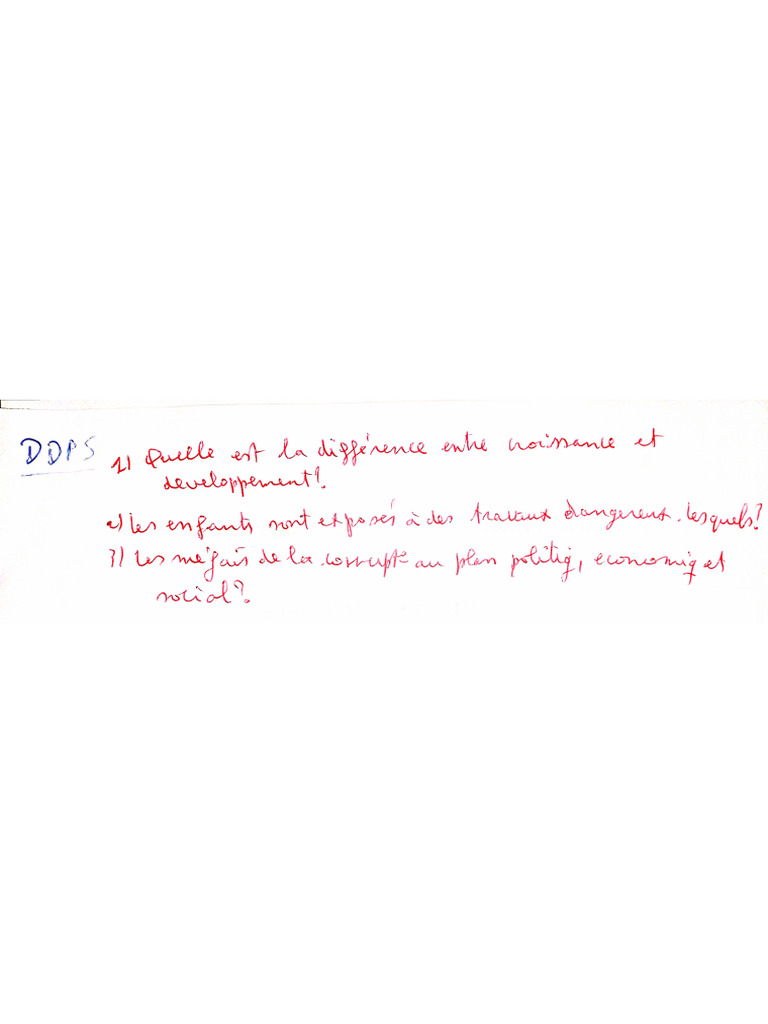 DDPS 1) Quelle est la différence entre croissance et
developpement?
2) Les enfants sont exposés à des travaux dangereux. lesquels?
3) Les méfais de la corrupt° au plan politiq, economiq et
social?